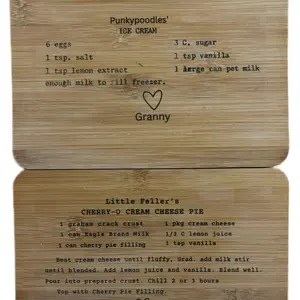 Punkypoodles'
ICE CREAM
6 eggs 3 C. sugar
1 tsp. salt 1 tsp vanilla
1 tsp lemon extract 1 large can pet milk
enough milk to fill freezer.
Granny
Little Feller's
CHERRY-O CREAM CHEESE PIE
1 graham crack crust 1 pkg cream cheese
1 can Eagle Brand Milk 1/3 C lemon juice
1 can cherry pie filling 1 tsp vanilla
Beat cream cheese until fluffy, Grad. add milk stir
until blended. Add lemon juice and vanilla. Blend well.
Pour into prepared crust. Chill 2 or 3 hours
Top with Cherry Pie Filling.